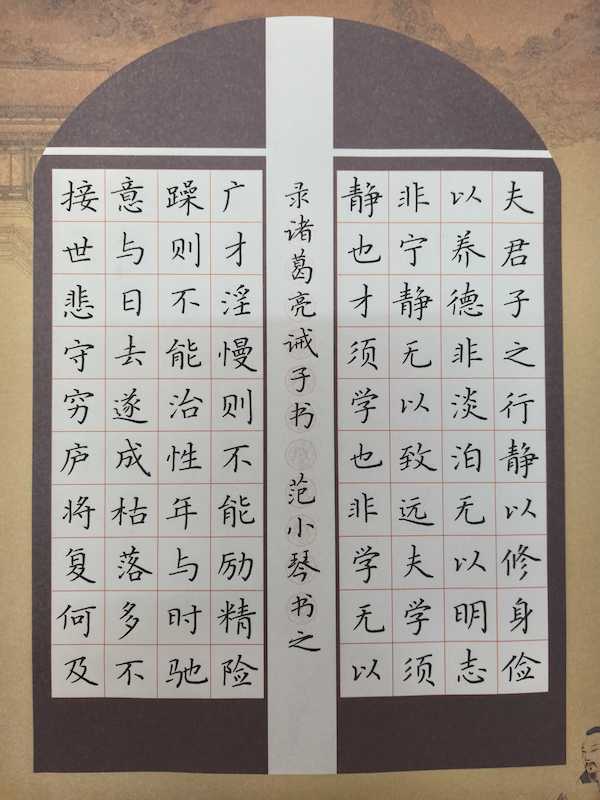 夫君子之行静以修身俭
以养德非淡泊无以明志
非宁静无以致远夫学须
静也才须学也非学无以
广才淫慢则不能励精险
躁则不能治性年与时驰
意与日去遂成枯落多不
接世悲守穷庐将复何及
录诸葛亮诫子书 范小琴书之